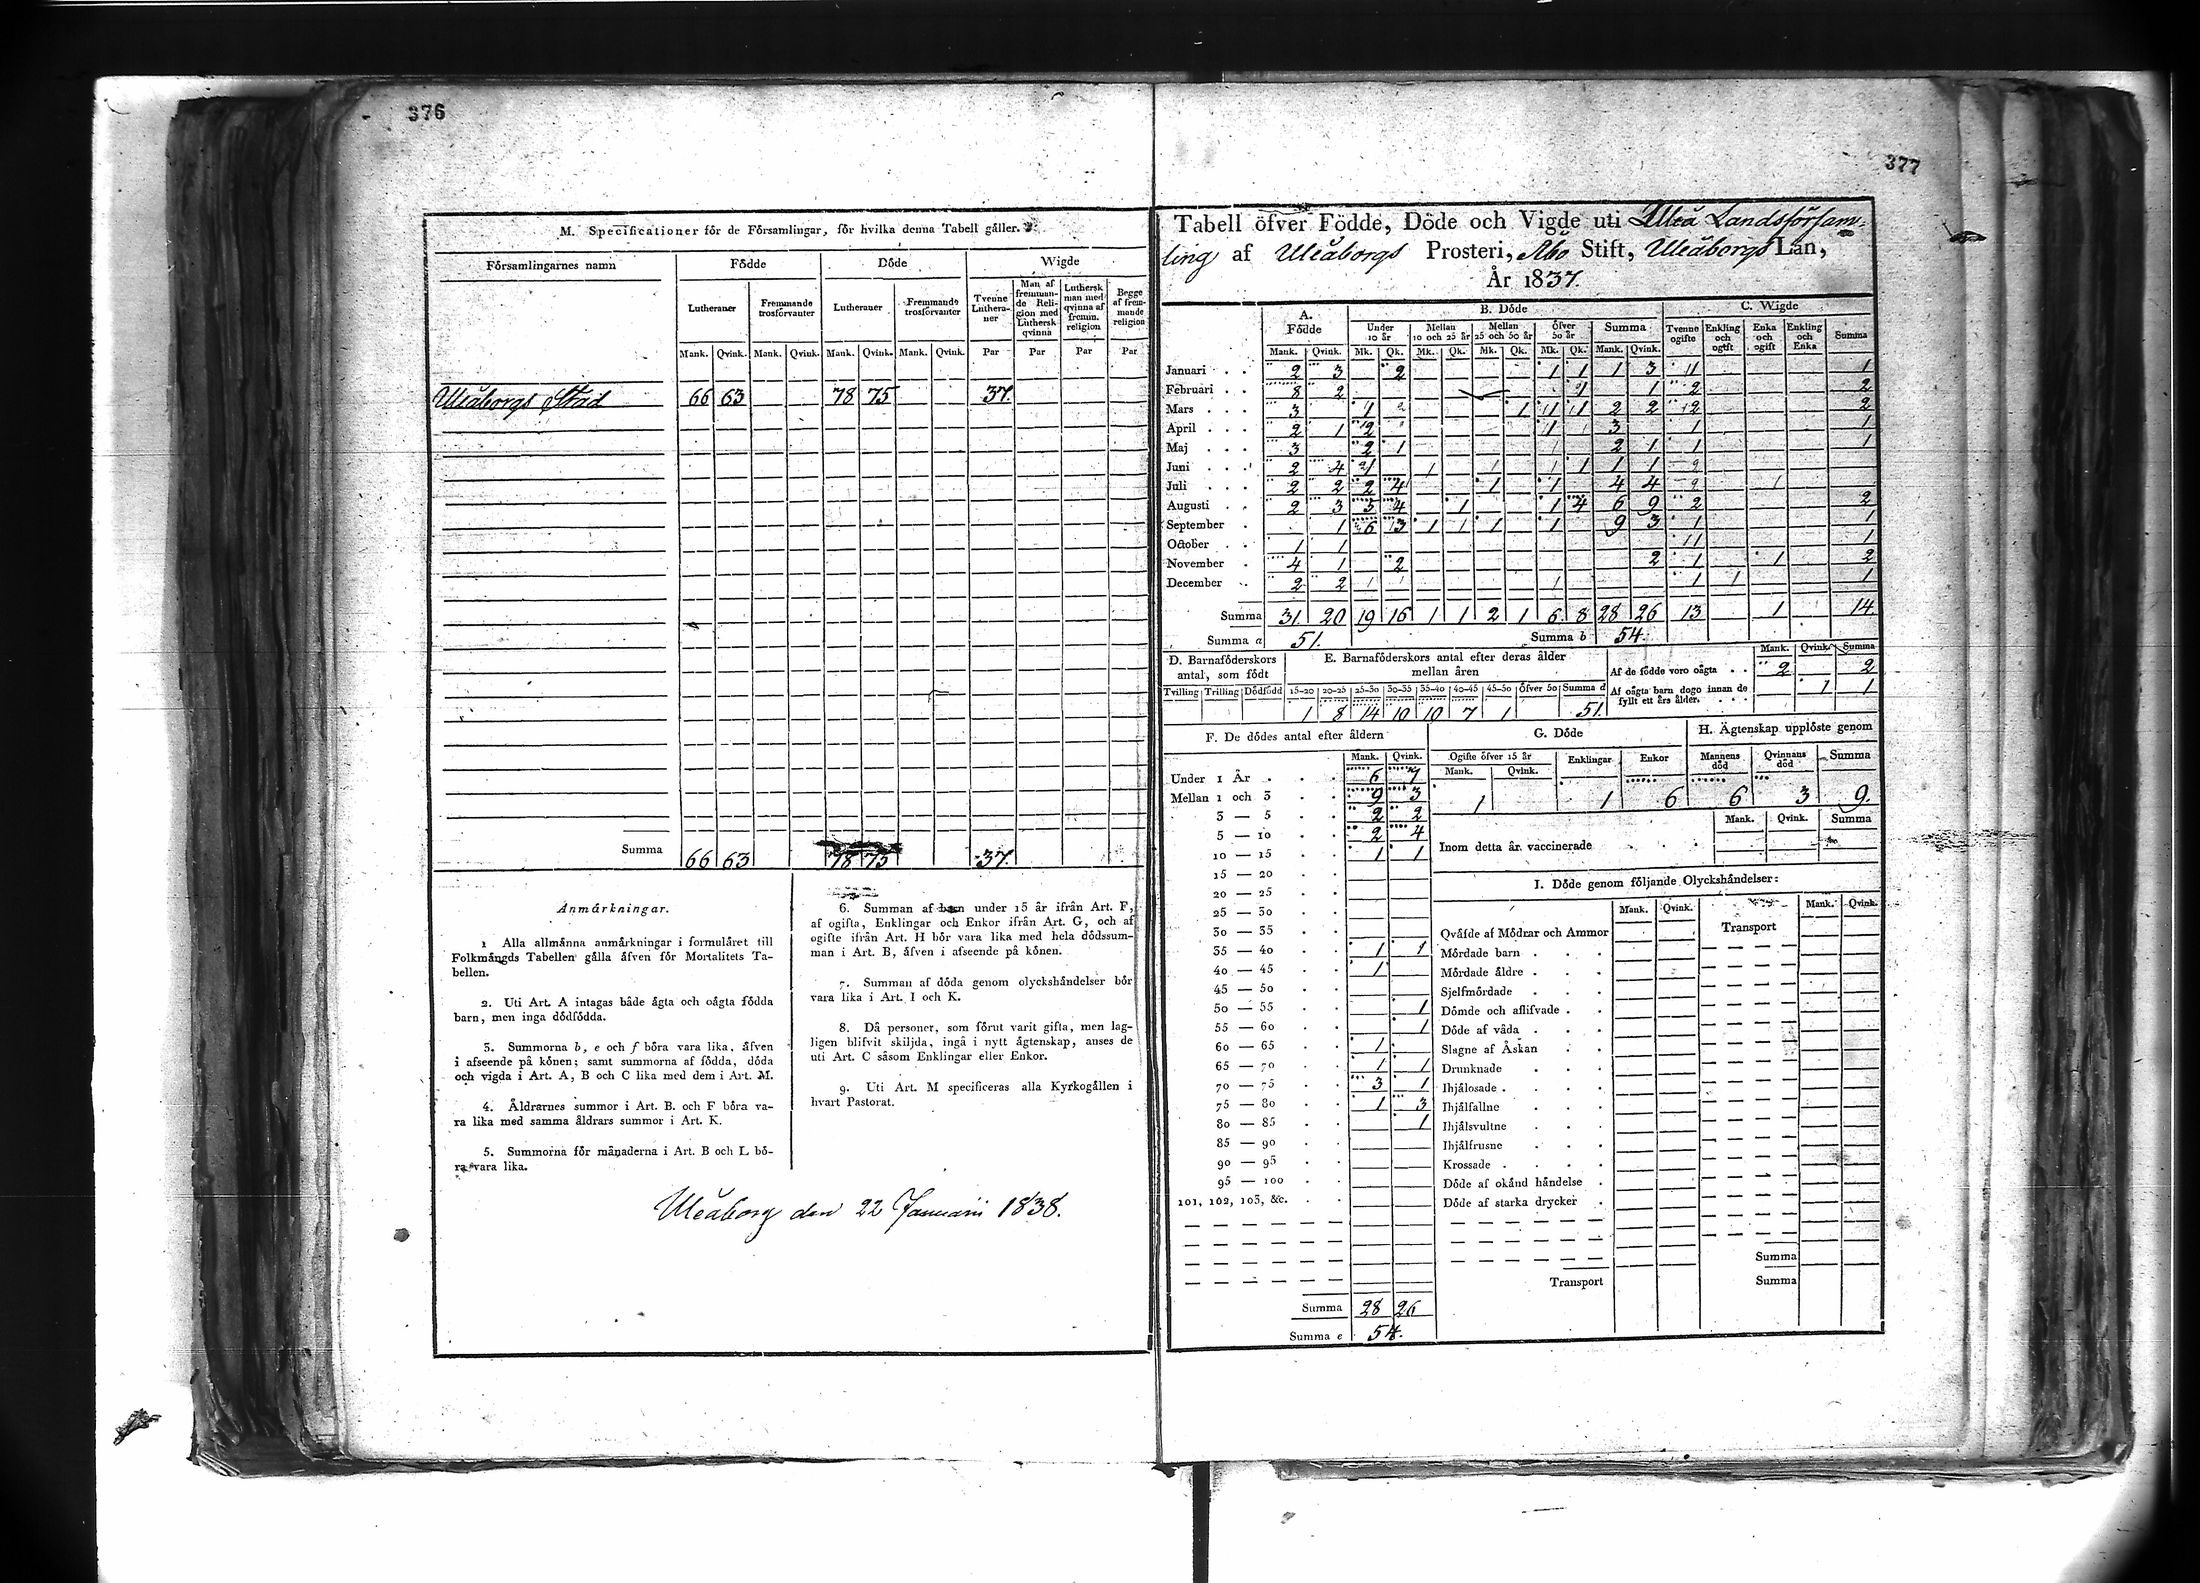 376
M. Specificationer för de Församlingar, för hvilka denna Tabell gäller.
Församlingarnes namn Födde Döde Wigde
Lutheraner Fremmande trosförvanter Lutheraner Fremmande trosförvanter Tvenne Lutheraner Man af fremmande Religion med Luthersk qvinna Luthersk man med qvinna af fremm. religion Begge af fremmande religion
Mank. Qvink. Mank. Qvink. Mank. Qvink. Mank. Qvink. Par Par Par Par
Uleåborgs Stad 66 63 78 75 37.
Summa 66 63 78 75 37.
Anmärkningar.
1 Alla allmänna anmärkningar i formuläret till
Folkmängds Tabellen gälla äfven för Mortalitets Ta-
bellen.
2. Uti Art. A intagas både ägta och oägta födda
barn, men inga dödfödda.
3. Summorna b, e och f böra vara lika, äfven
i afseende på könen; samt summorna af födda, döda
och vigda i Art. A, B och C lika med dem i Art. M.
4. Åldrarnes summor i Art. B. och F böra va-
ra lika med samma åldrars summor i Art. K.
5. Summorna för månaderna i Art. B och L bö-
ra vara lika.
6. Summan af barn under 15 år ifrån Art. F,
af ogifta, Enklingar och Enkor ifrån Art. G, och af
ogifte ifrån Art. H bör vara lika med hela dödssum-
man i Art. B, äfven i afseende på könen.
7. Summan af döda genom olyckshändelser bör
vara lika i Art. I och K.
8. Då personer, som förut varit gifta, men lag-
ligen blifvit skiljda, ingå i nytt ägtenskap, anses de
uti Art. C såsom Enklingar eller Enkor.
9. Uti Art. M specificeras alla Kyrkogällen i
hvart Pastorat.
Uleåborg den 22 Januarii 1838.
377
Tabell öfver Födde, Döde och Vigde uti Uleå Landsförsam-
ling af Uleåborgs Prosteri, Åbo Stift, Uleåborgs Län,
År 1837.
A. Födde B. Döde C. Wigde
Under 10 år Mellan 10 och 25 år Mellan 25 och 50 år öfver 50 år Summa Tvenne ogifte Enkling och ogift Enka och ogift Enkling och Enka Summa
Mank. Qvink. Mk. Qk. Mk. Qk. Mk. Qk. Mk. Qk. Mank. Qvink.
Januari 2 3 2 1 1 1 3 1
Februari 8 2 1 2 2
Mars 3 1 1 2 2 2 2
April 2 1 2 1 3 1 1
Maj 3 2 1 2 1 1 1
Juni 2 4 1 1 1 1
Juli 2 2 2 4 1 1 4 4
Augusti 2 3 5 4 1 1 4 6 9 2 2
September 1 6 3 1 1 1 9 3 1 1
October 1 1 1
November 4 1 2 2 1 1 2
December 2 2 1 1
Summa 31 20 19 16 1 1 2 1 6 8 28 26 13 1 14.
Summa a 51. Summa b 54.
D. Barnaföderskors antal, som födt
Tvilling Trilling Dödfödd
E. Barnaföderskors antal efter deras ålder mellan åren
15-20 20-25 25-30 30-35 35-40 40-45 45-50 öfver 50 Summa d
1 8 14 10 10 7 1 51.
Mank. Qvink. Summa
Af de födde voro oägta 2 2
Af oägta barn dogo innan de fyllt ett års ålder. 1 1
F. De dödes antal efter åldern
Mank. Qvink.
Under 1 År 6 7
Mellan 1 och 3 9 3
3 — 5 2 2
5 — 10 2 4
10 — 15 1 1
15 — 20
20 — 25
25 — 30
30 — 35
35 — 40 1 1
40 — 45 1
45 — 50
50 — 55 1
55 — 60 1
60 — 65 1
65 — 70 1 1
70 — 75 3 1
75 — 80 1 3
80 — 85 1
85 — 90
90 — 95
95 — 100
101, 102, 103, &c.
Summa 28 26
Summa e 54.
G. Döde
Ogifte öfver 15 år Enklingar Enkor
Mank. Qvink.
1 1 6
H. Ägtenskap upplöste genom
Mannens död Qvinnans död Summa
6 3 9.
Mank. Qvink. Summa
Inom detta år vaccinerade
I. Döde genom följande Olyckshändelser:
Mank. Qvink. Transport Mank. Qvink.
Qväfde af Mödrar och Ammor
Mördade barn
Mördade äldre
Sjelfmördade
Dömde och aflifvade
Döde af våda
Slagne af Åskan
Drunknade
Ihjälosade
Ihjälfallne
Ihjälsvultne
Ihjälfrusne
Krossade
Döde af okänd händelse
Döde af starka drycker
Summa
Transport Summa